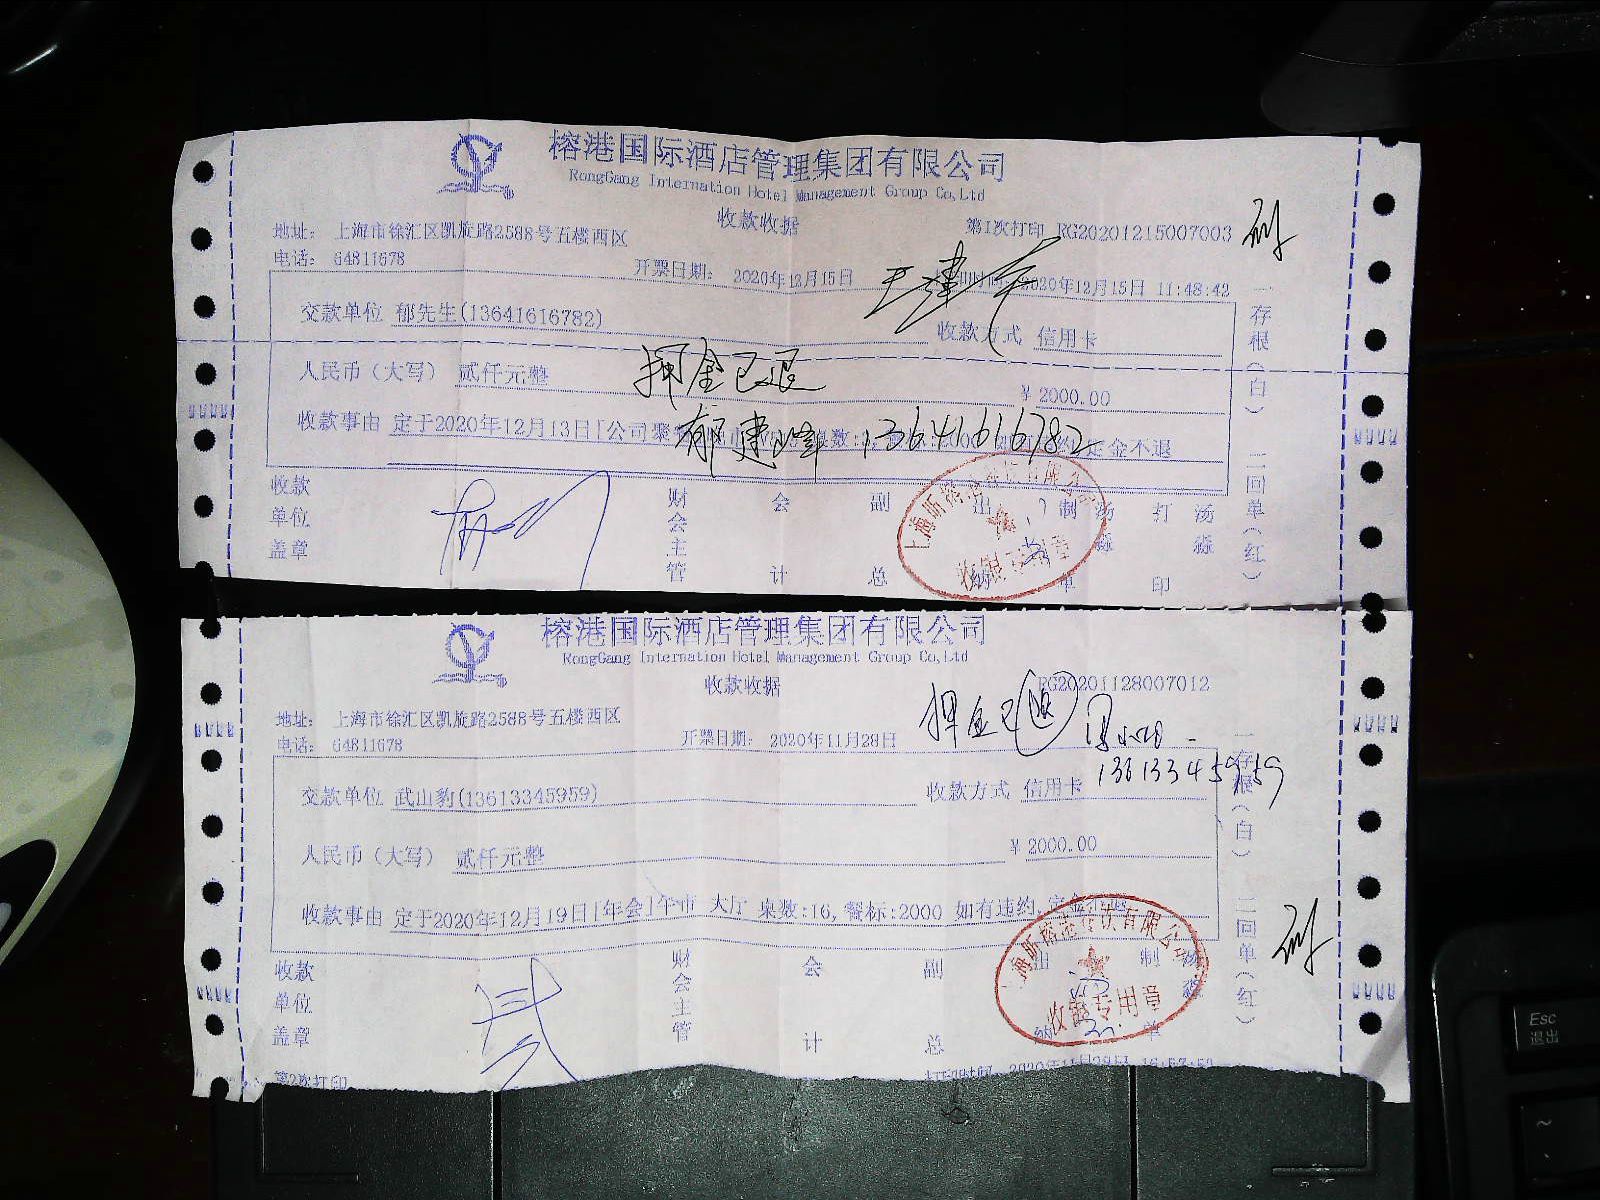 榕港国际酒店管理集团有限公司
RongGang Internation Hotel Management Group Co,Ltd
收款收据
第1次打印 RG20201215007003
地址： 上海市徐汇区凯旋路2588号五楼西区
电话： 64811678
开票日期： 2020年12月15日
2020年12月15日 11:48:42
交款单位 郁先生(13641616782)
收款方式 信用卡
人民币（大写） 贰仟元整
￥2000.00
押金已退
收款事由 定于2020年12月13日[公司聚
定金不退
郁建峰 13641616782
收款单位盖章
财会主管
会计
副总
出纳
制单
汤淼
打印
汤淼
一存根（白）
二回单（红）
榕港国际酒店管理集团有限公司
RongGang Internation Hotel Management Group Co,Ltd
收款收据
RG20201128007012
地址： 上海市徐汇区凯旋路2588号五楼西区
电话： 64811678
开票日期： 2020年11月28日
押金已退
13613345959
交款单位 武山豹(13613345959)
收款方式 信用卡
人民币（大写） 贰仟元整
￥2000.00
收款事由 定于2020年12月19日[年会]午市 大厅 桌数:16,餐标:2000 如有违约,定金不退
收款单位盖章
财会主管
会计
副总
出纳
制单
汤淼
收银专用章
一存根（白）
二回单（红）
第2次打印
打印时间： 2020年11月28日 16:57:52
Esc
退出
~